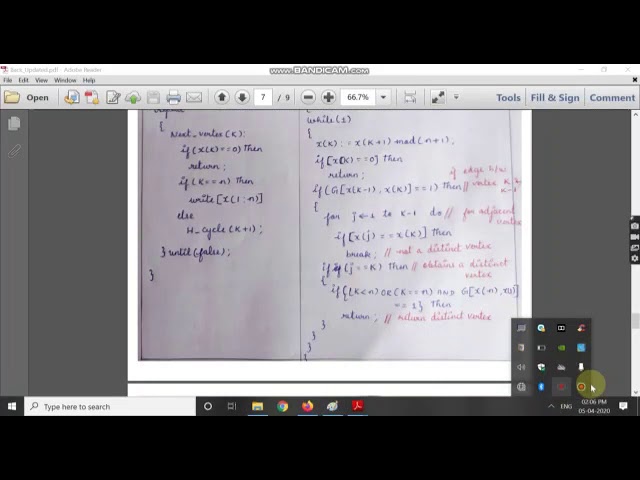 www.BANDICAM.com
Back_Updated.pdf - Adobe Reader
File Edit View Window Help
Open
7 / 9
66.7%
Tools Fill & Sign Comment
{
Next_vertex(K):
if(x(K)==0) then
return;
if(K==n) then
write[x(1:n)]
else
H_cycle(K+1);
}until(false);
}
while(1)
{
x(K):=x(K+1)mod(n+1);
if[x(K)==0] then
return;
if(G[x(K-1), x(K)]==1) then // if edge b/w vertex K & K-1
{
for j←1 to K-1 do // for adjacent vertex
if[x(j)==x(K)] then
break; // not a distinct vertex
if(j==K) then // obtains a distinct vertex
{
if{(K<n) OR(K==n) AND G[x(n),x(1)]
==1} then
return; // return distinct vertex
}
}
}
Type here to search
ENG
02:06 PM
05-04-2020